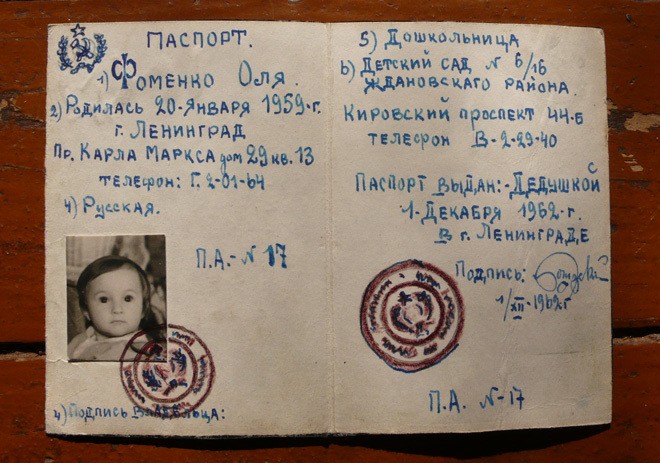 ПАСПОРТ.
1) ФОМЕНКО ОЛЯ.
2) РОДИЛАСЬ 20-ЯНВАРЯ 1959-г.
г. ЛЕНИНГРАД
ПР. КАРЛА МАРКСА дом 29 кв. 13
ТЕЛЕФОН: Г. 2-01-64
4) РУССКАЯ.
П.А.-N 17
4) ПОДПИСЬ ВЛАДЕЛЬЦА:
5) ДОШКОЛЬНИЦА
6) ДЕТСКИЙ САД N 6/16
ЖДАНОВСКАГО РАЙОНА.
КИРОВСКИЙ ПРОСПЕКТ 44-Б
ТЕЛЕФОН В-2-29-40
ПАСПОРТ ВЫДАН:-ДЕДУШКОЙ
1-ДЕКАБРЯ 1962-г.
В г. ЛЕНИНГРАДЕ
ПОДПИСЬ:
1/XII-1962г
П.А. N-17